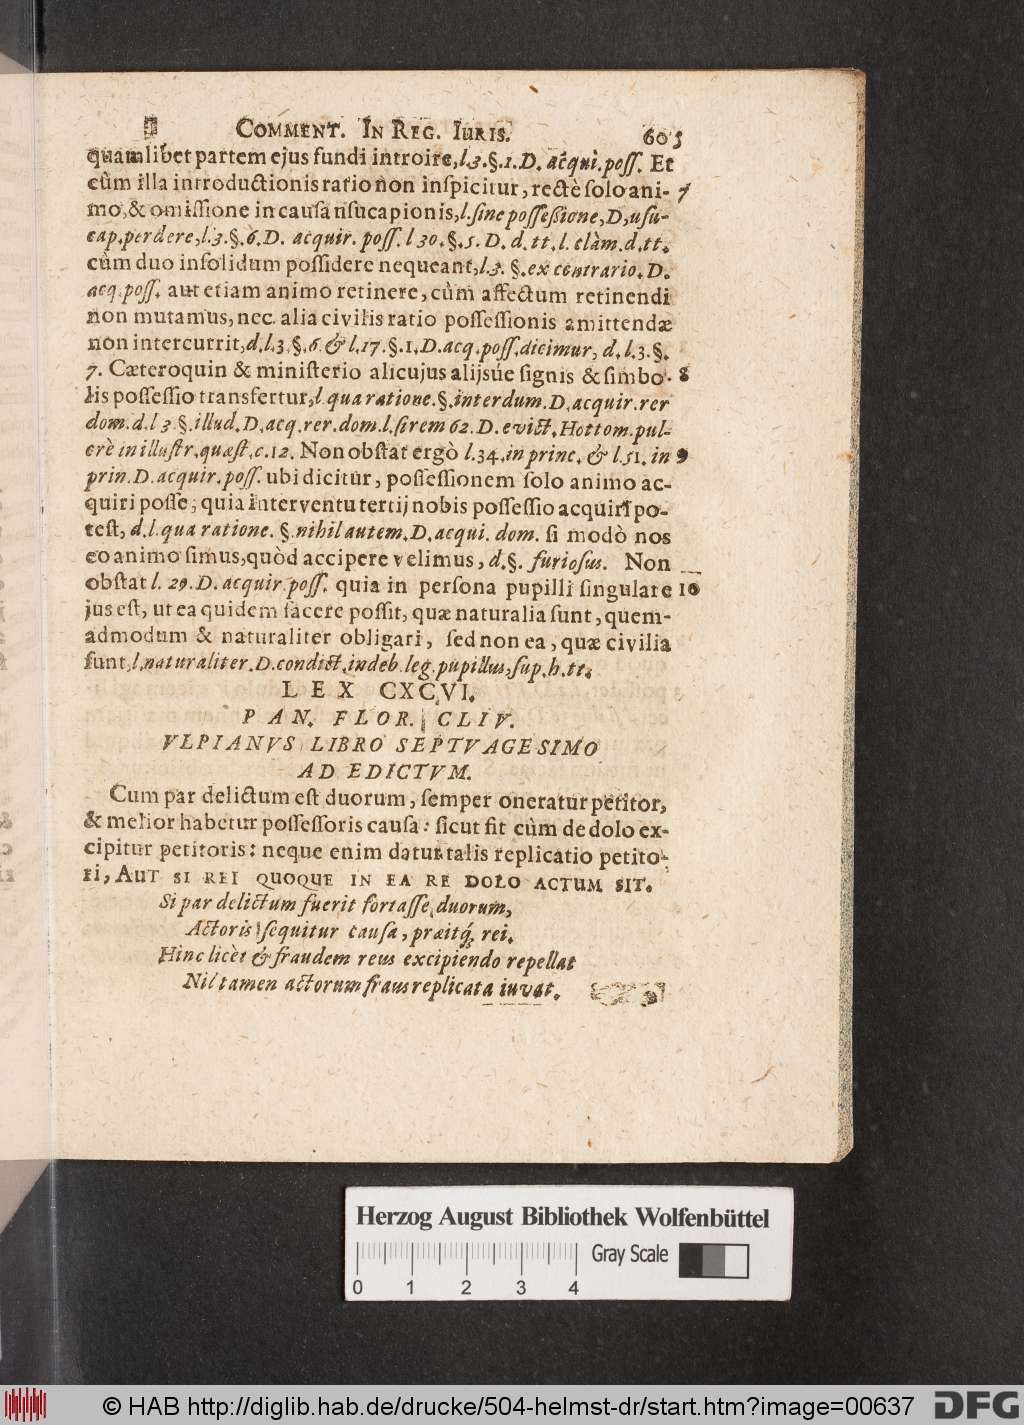 COMMENT. IN REG. IURIS. 603
quamlibet partem ejus fundi introire, l.3.§.1.D. acqui.poss. Et
cùm illa introductionis ratio non inspicitur, rectè solo ani- 7
mo, & omissione in causa usucapionis, l. sine possessione, D, usu-
cap. perdere, l.3.§.6.D. acquir. poss. l 30.§.5. D. d. tt. l. clàm. d. tt.
cùm duo insolidum possidere nequeant, l.3. §. ex contrario. D.
acq. poss. aut etiam animo retinere, cùm affectum retinendi
non mutamus, nec. alia civilis ratio possessionis amittendæ
non intercurrit, d.l.3.§.6. & l.17.§.1.D.acq.poss.dicimur, d. l.3.§.
7. Cæteroquin & ministerio alicujus alijsúe signis & simbo- 8
lis possessio transfertur, l qua ratione.§.interdum.D.acquir.rer
dom.d.l 3 §.illud.D.acq.rer.dom.l.si rem 62.D.evict.Hottom.pul-
crè in illustr.quæst.c.12. Non obstat ergò l.34.in princ. & l.51. in 9
prin.D.acquir.poss. ubi dicitur, possessionem solo animo ac-
quiri posse; quia interventu tertij nobis possessio acquiri po-
test, d.l.qua ratione. §.nihil autem.D.acqui. dom. si modò nos
eo animo simus, quòd accipere velimus, d.§. furiosus. Non
obstat l. 29.D. acquir.poss. quia in persona pupilli singulare 10
jus est, ut ea quidem facere possit, quæ naturalia sunt, quem-
admodum & naturaliter obligari, sed non ea, quæ civilia
sunt, l.naturaliter.D.condict.indeb.leg.pupillus, sup.h.tt.
LEX CXCVI.
PAN. FLOR. CLIV.
VLPIANVS LIBRO SEPTVAGESIMO
AD EDICTVM.
Cum par delictum est duorum, semper oneratur petitor,
& melior habetur possessoris causa: sicut fit cùm de dolo ex-
cipitur petitoris: neque enim datur talis replicatio petito-
ri, AUT SI REI QUOQUE IN EA RE DOLO ACTUM SIT.
Si par delictum fuerit fortasse duorum,
Actoris sequitur causa, præitq́; rei.
Hinc licèt & fraudem reus excipiendo repellat
Nil tamen actorum fraus replicata iuvat.
Herzog August Bibliothek Wolfenbüttel
Gray Scale
0 1 2 3 4
© HAB http://diglib.hab.de/drucke/504-helmst-dr/start.htm?image=00637 DFG